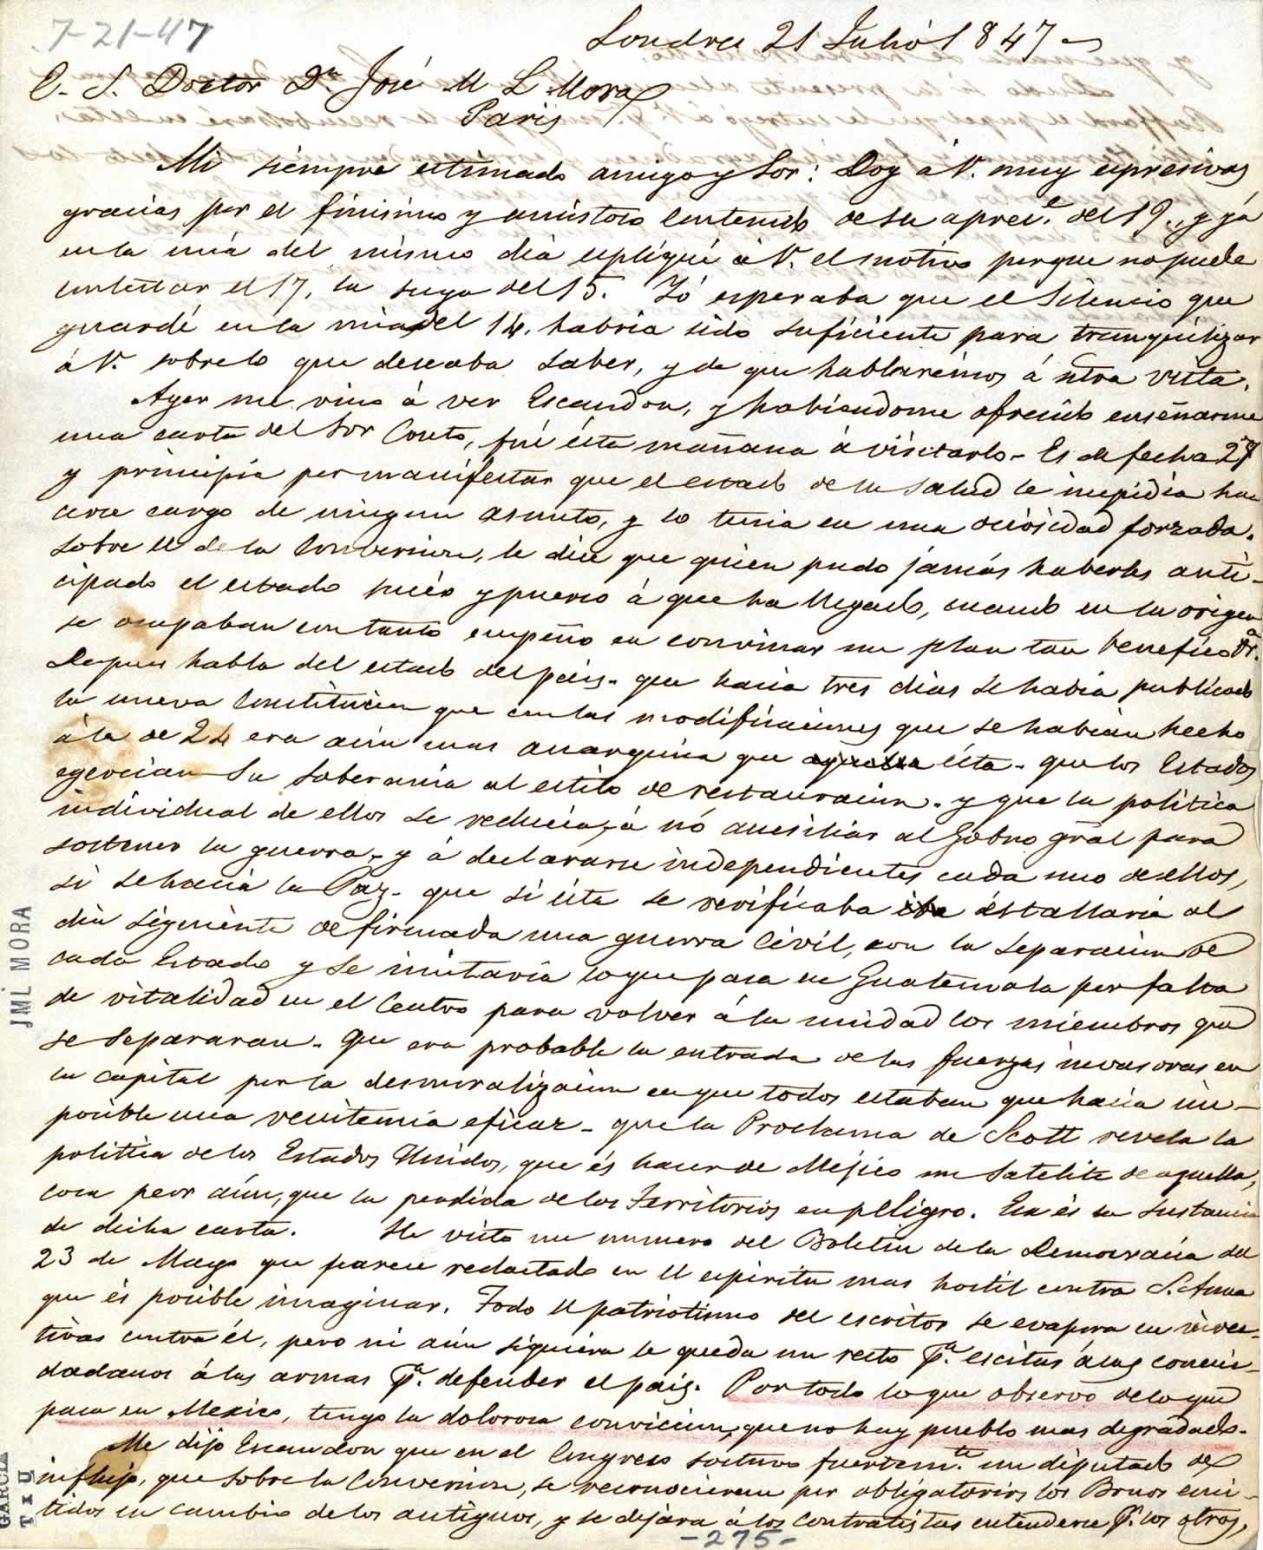 7-21-47
Londres 21 Julió 1847
E. S. Doctor Dn. José M L Mora
Paris
Mi siempre estimado amigo y Sor: Doy á V. muy espresivas
gracias por el finisimo y amistoso contenido de su aprec.e del 19. y yá
en la mia del mismo dia espliqué á V. el motivo porque no pude
contestar el 17, la suya del 15. Yó esperaba que el Silencio que
guardé en la mia del 14. habria sido suficiente para tranquilizar
á V. sobre lo que deseaba saber, y de que hablarémos á ntra vista.
Ayer me vino á ver Escandon, y habiendome ofrecido enseñarme
una carta del Sor Couto, fuí ésta mañana á visitarlo. Es de fecha 29
y principia por manifestar que el estado de su Salud le impidia ha
cerse cargo de ningun asunto, y lo tenia en una ociosidad forzada.
Sobre el de la Conversion, le dice que quien pudo jamás haberles anti-
cipado el estado sucio y puerco á que ha llegado, cuando en su origen
se ocupaban con tanto empeño en convinar un plan tan benefico &a.
Despues habla del estado del pais. que hacia tres dias se habia publicado
la nueva Constitucion que con las modificaciones que se habian hecho
á la de 24 era aún mas anarquica que ésta. que los Estados
egercian su Soberania al estilo de restauracion. y que la politica
individual de ellos se reducia, á nó ausiliar al Gobno gral para
sostener la guerra, y á declararse independientes cada uno de ellos,
si se hacia la Paz. que si ésta se verificaba éstallaria al
dia siguiente de firmada una guerra Civil, con la Separacion de
cada Estado y se imitaria lo que pasa en Guatemala por falta
de vitalidad en el Centro para volver á la unidad los miembros que
se separaran. Que era probable la entrada de las fuerzas invasoras en
la capital por la desmoralizacion en que todos estaban que hacia im-
posible una resistencia eficaz. que la Proclama de Scott revela la
politica de los Estados Unidos, que és hacer de Mejico un Satelite de aquella,
cosa peor aún, que la perdida de los Territorios en pEligro. Esa és la Sustancia
de dicha carta. He visto un numero del Boletin de la Democracia del
23 de Mayo que parece redactado en el espiritu mas hostil contra S. Anna
que és posible imaginar. Todo el patriotismo del escritor se evapora en invec-
tivas contra él, pero ni aún siquiera le queda un resto p.a escitar á sus conciu-
dadanos á las armas p.a defender el pais. Por todo lo que observo de lo que
pasa en Mexico, tengo la dolorosa conviccion, que no hay pueblo mas degradado.
Me dijo Escandon que en el Congreso sostuvo fuertem.te un diputado de
influjo, que sobre la Conversion, se reconocieran por obligatorios los Bonos emi-
tidos en cambio de los antiguos, y se dejara á los Contratistas entenderse p.r los otros,
-275-
JML MORA
GARCIA
T x U